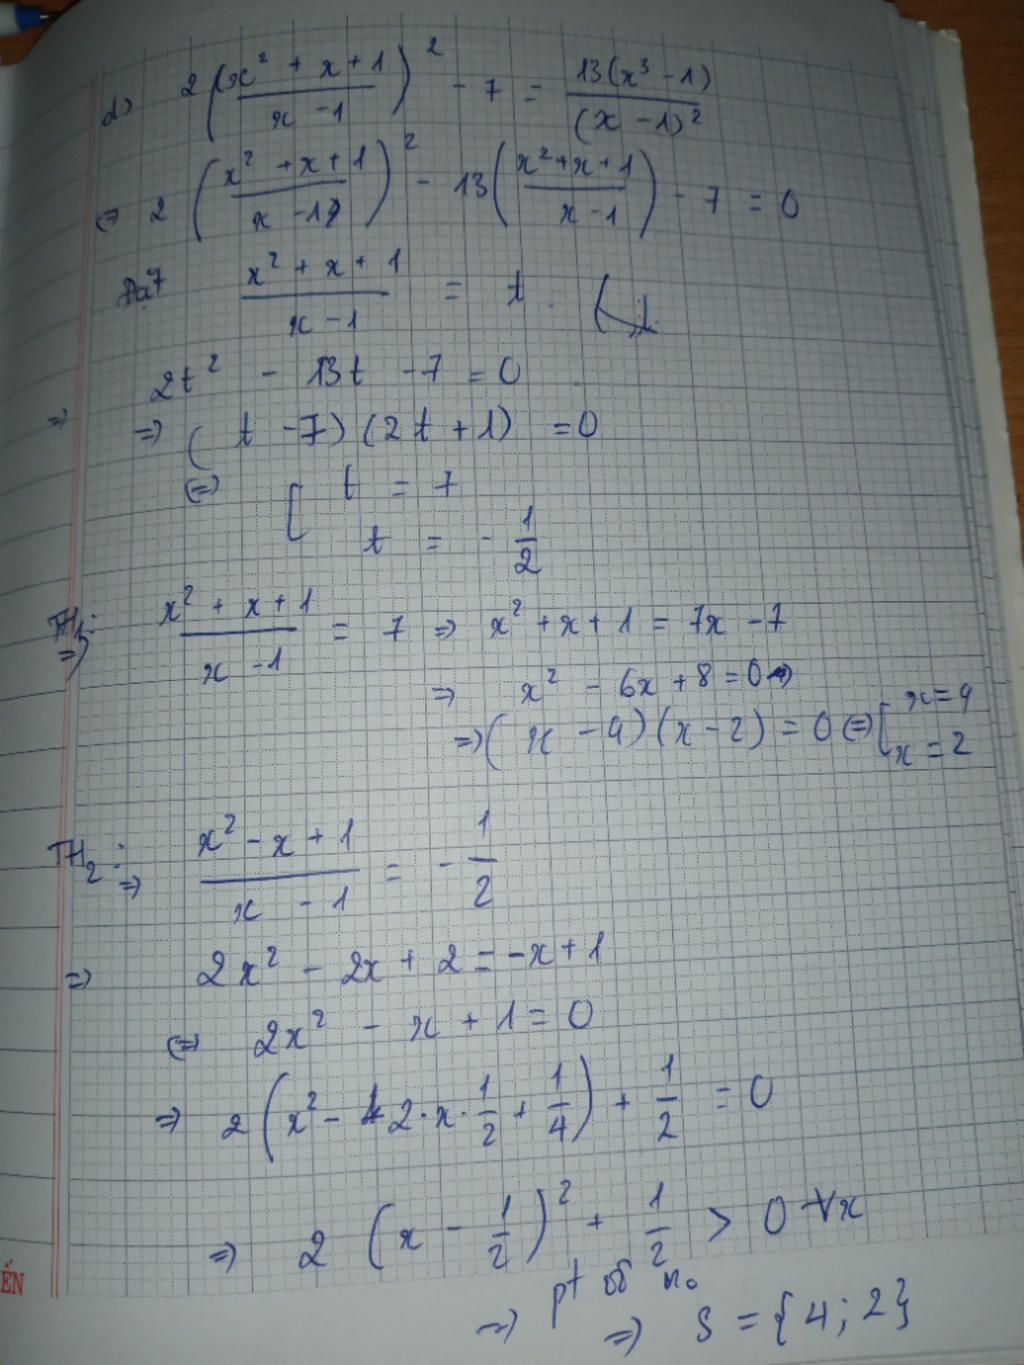 d) 2(x² + x + 1 / x - 1)² - 7 = 13(x³ - 1) / (x - 1)²
⇔ 2(x² + x + 1 / x - 1)² - 13(x² + x + 1 / x - 1) - 7 = 0
Đặt x² + x + 1 / x - 1 = t.
⇒ 2t² - 13t - 7 = 0
⇒ (t - 7)(2t + 1) = 0
⇔ [ t = 7
t = - 1/2
TH1: ⇒ x² + x + 1 / x - 1 = 7 ⇒ x² + x + 1 = 7x - 7
⇒ x² - 6x + 8 = 0 ⇒
⇒ (x - 4)(x - 2) = 0 ⇔ [ x = 4
x = 2
TH2: ⇒ x² - x + 1 / x - 1 = - 1/2
⇒ 2x² - 2x + 2 = -x + 1
⇔ 2x² - x + 1 = 0
⇒ 2(x² - 2·x·1/2 + 1/4) + 1/2 = 0
⇒ 2(x - 1/2)² + 1/2 > 0 ∀x
⇒ pt vô no
⇒ S = {4; 2}
ẾN